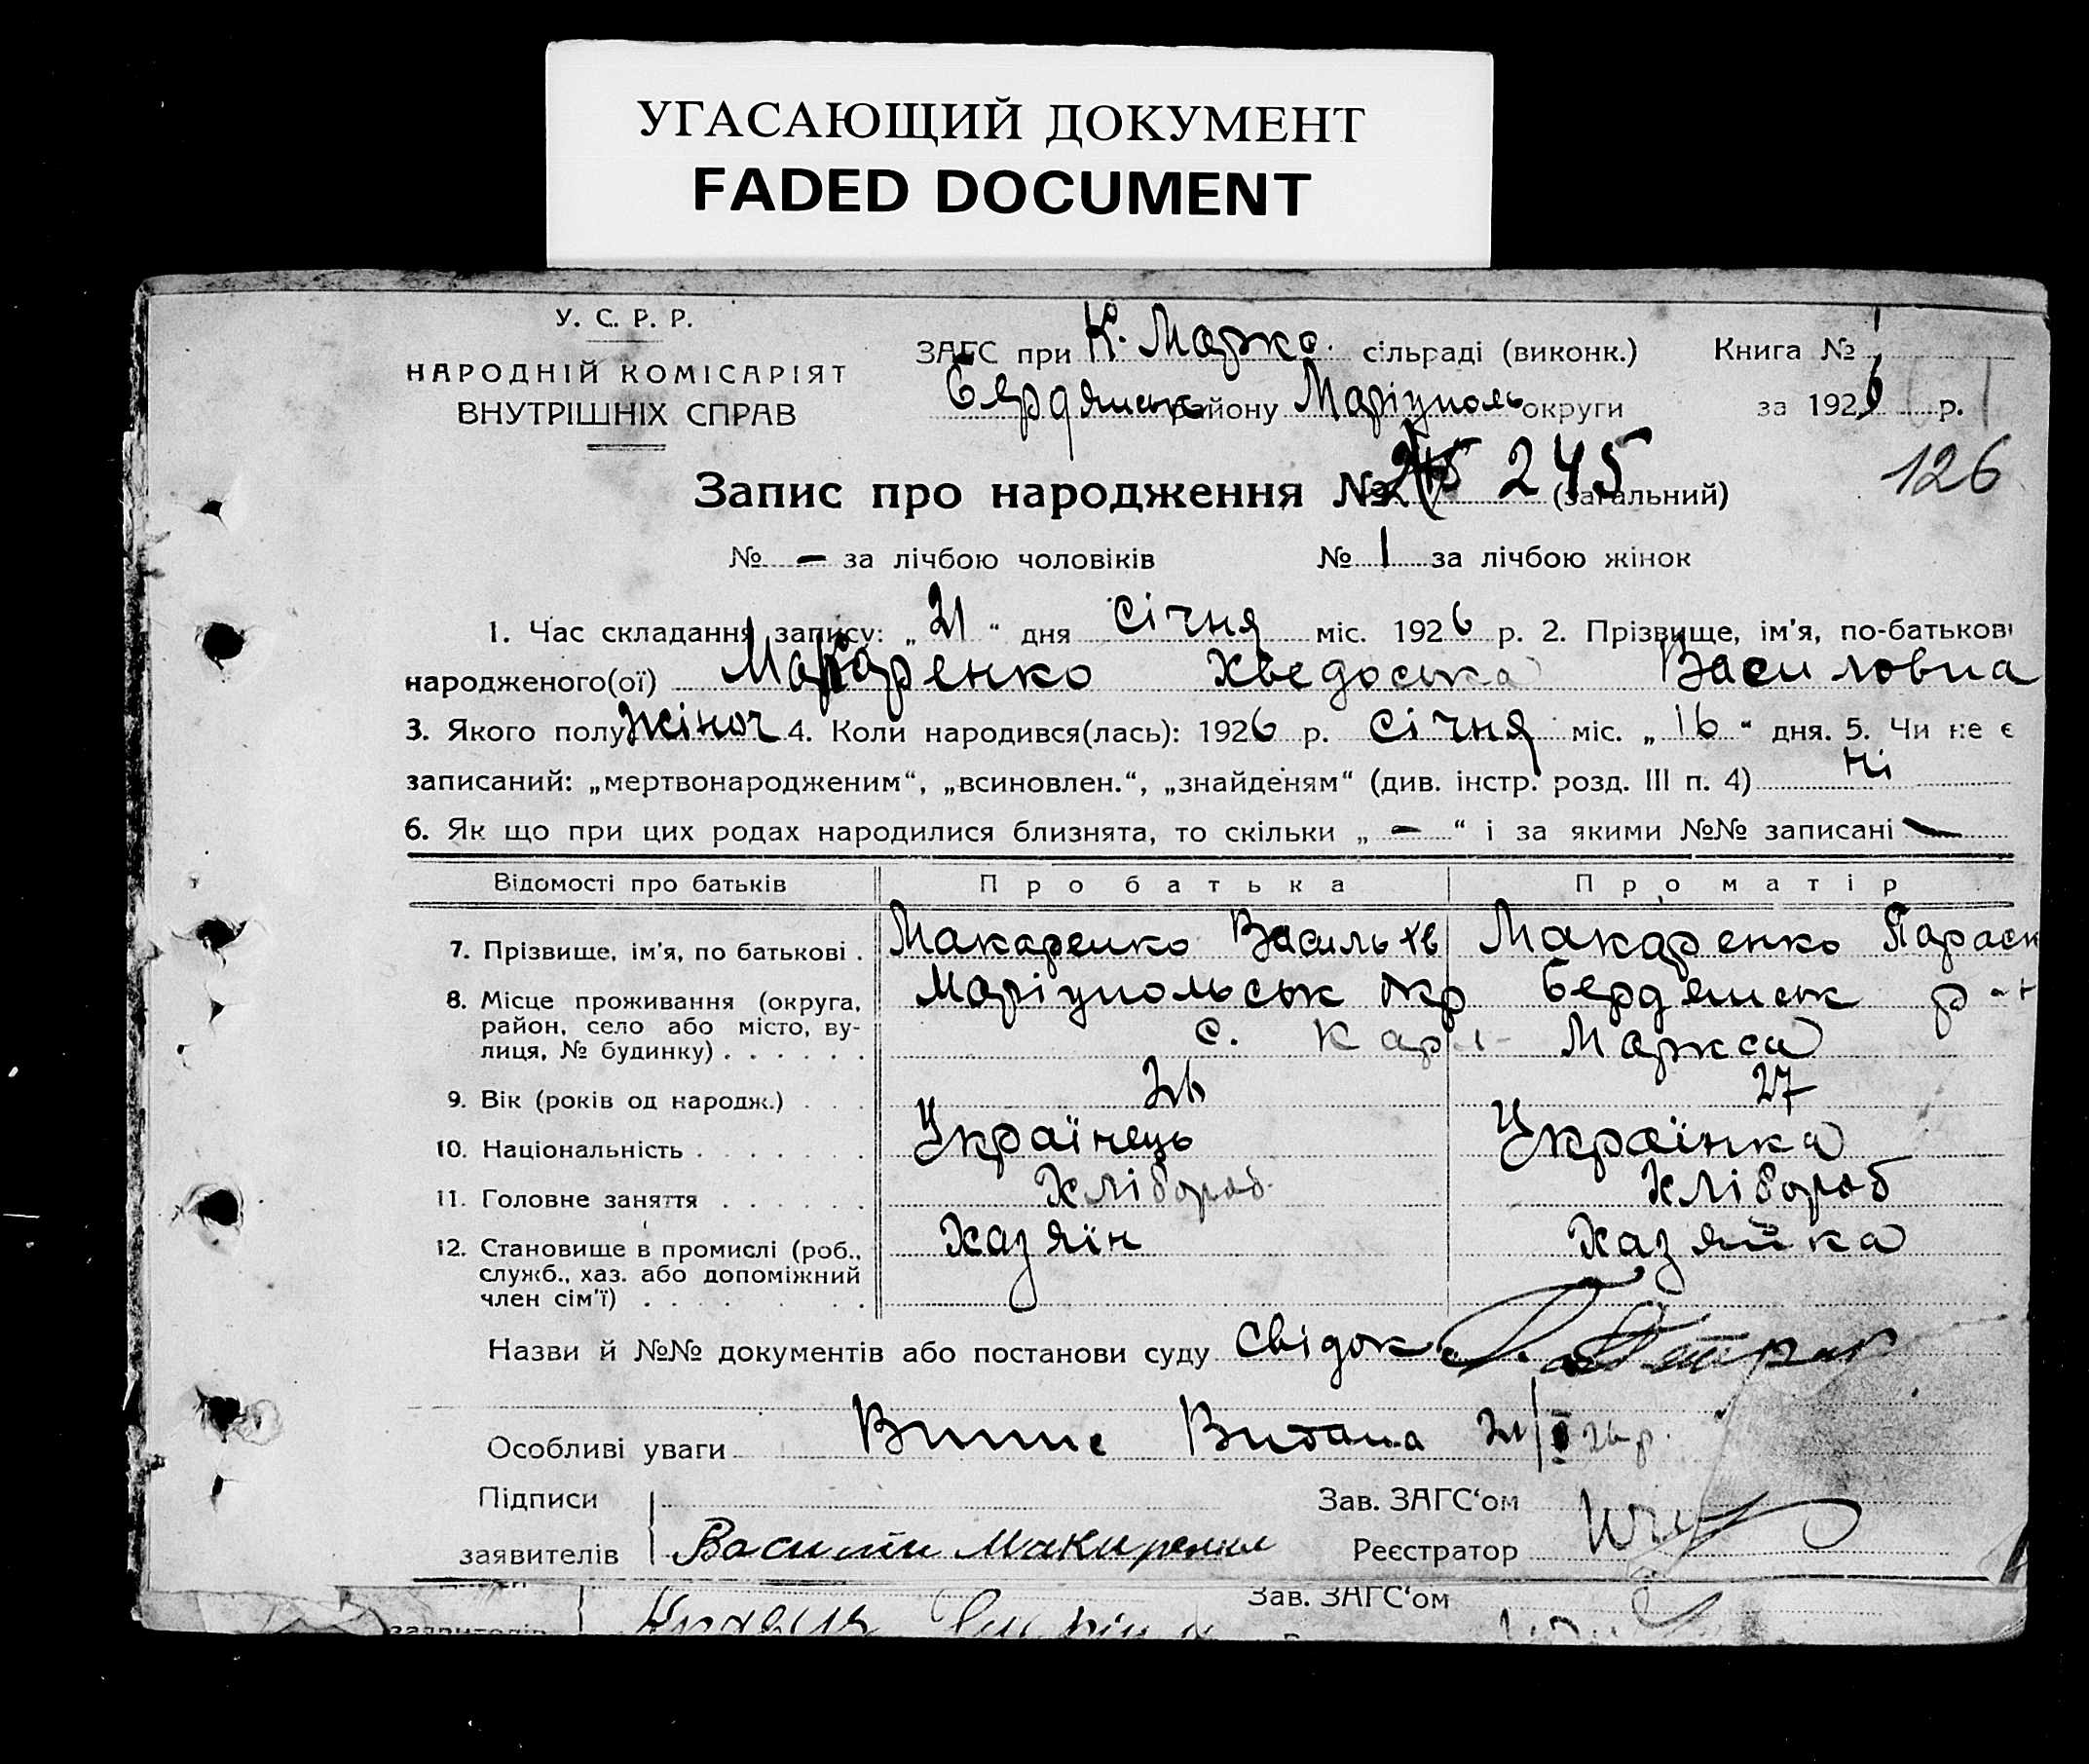 УГАСАЮЩИЙ ДОКУМЕНТ
FADED DOCUMENT
У. С. Р. Р.
НАРОДНІЙ КОМІСАРІЯТ
ВНУТРІШНІХ СПРАВ
ЗАГС при К. Марко. сільраді (виконк.) Книга №
Бердянськ району Маріуполь округи за 1926 р.
126
Запис про народження № 245 (загальний)
№ – за лічбою чоловіків № 1 за лічбою жінок
1. Час складання запису: „21“ дня Січня міс. 1926 р. 2. Прізвище, ім'я, по-батькові
народженого(ої) Макаренко Хведоська Василовна
3. Якого полу Жіноч 4. Коли народився(лась): 1926 р. Січня міс. „16“ дня. 5. Чи не є
записаний: „мертвонародженим“, „всиновлен.“, „знайденям“ (див. інстр. розд. III п. 4) Ні
6. Як що при цих родах народилися близнята, то скільки „–“ і за якими №№ записані –
Відомості про батьків Про батька Про матір
7. Прізвище, ім'я, по батькові . Макаренко Василь Хв Макаренко Параск
8. Місце проживання (округа, Маріупольськ окр Бердянськ р-н
район, село або місто, ву-
лиця, № будинку) . . . . . . с. Карл Маркса
9. Вік (років од народж.) . . . 26 27
10. Національність . . . . . . . Українець Українка
11. Головне заняття . . . . . . Хлібороб Хлібороб
12. Становище в промислі (роб., Хазяїн Хазяйка
служб., хаз. або допоміжний
член сім'ї) . . . . . .
Назви й №№ документів або постанови суду Свідок
Особливі уваги Випис Видана 21/I 26 р.
Підписи Зав. ЗАГС'ом
заявителів Василь Макаренко Реєстратор
Зав. ЗАГС'ом
заявителів